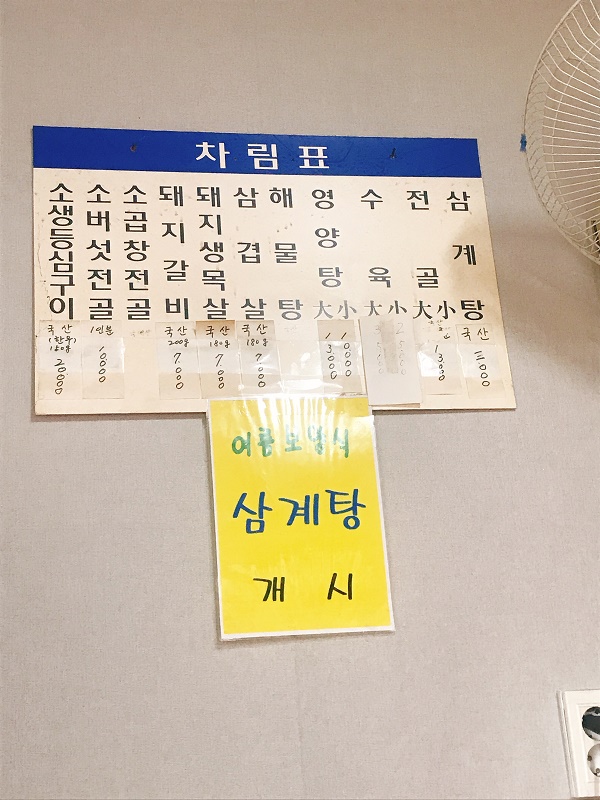 차림표
소생등심구이
소버섯전골
소곱창전골
돼지갈비
돼지생목살
삼겹살
해물탕
영양탕 大 小
수육 大 小
전골 大 小
삼계탕
국산 (한우) 150g 20000
1인분 10000
국산 200g 7.000
국산 180g 7.000
국산 180g 7.000
13.000 10000
13.000
국산
여름보양식
삼계탕
개시